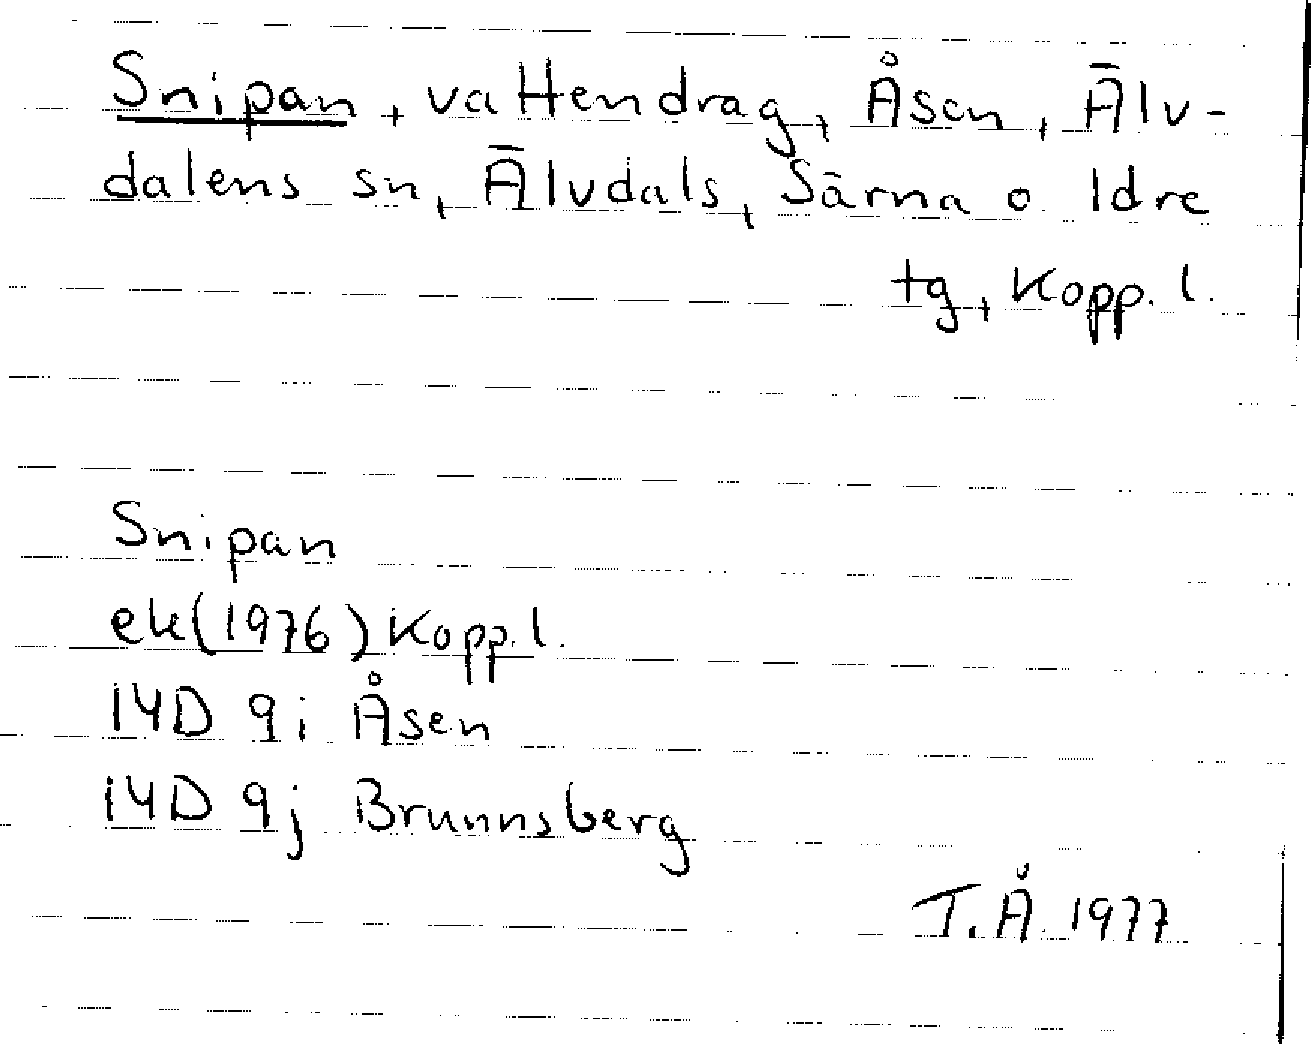 Snipan, vattendrag, Åsen, Älv-
dalens sn, Älvdals, Särna o Idre
tg, Kopp. l.
Snipan
ek(1976) Kopp. l.
14D 9i Åsen
14D 9j Brunnsberg
T.Å. 1977